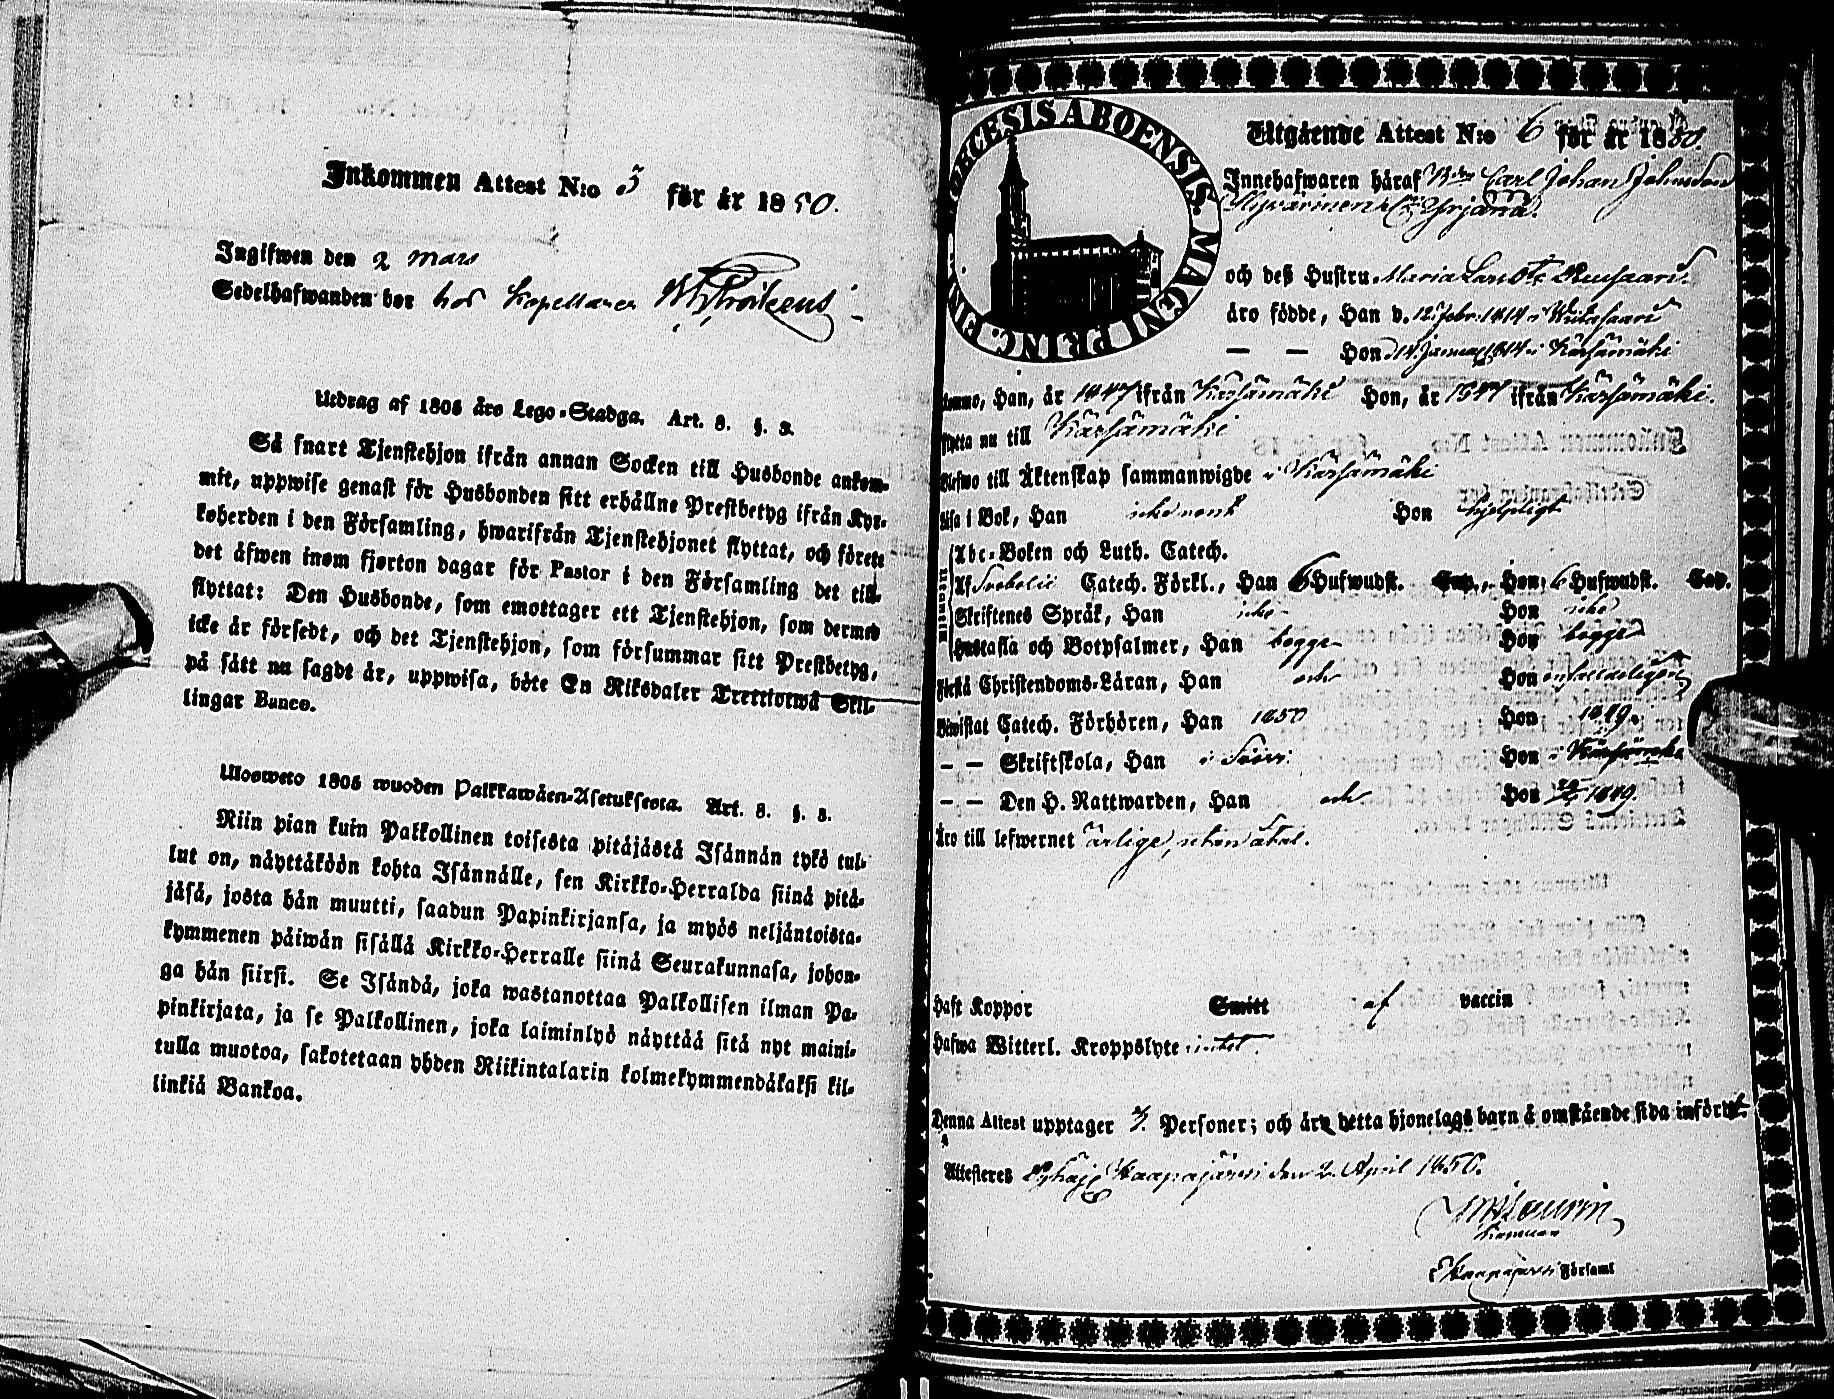 Inkommen Attest N:o 3 för år 1850.
Ingifwen den 2 mars
Sedelhafwanden bor hos Kapellanen
Utdrag af 1805 års Lego-Stadga. Art. 8. §. 3.
Så snart Tjenstehjon ifrån annan Socken till Husbonde ankom-
mit, uppwise genast för Husbonden sitt erhållne Prestbetyg ifrån Kyr-
koherden i den Församling, hwarifrån Tjenstehjonet flyttat, och förete
det äfwen inom fjorton dagar för Pastor i den Församling det till-
flyttat: Den Husbonde, som emottager ett Tjenstehjon, som dermed
icke är försedt, och det Tjenstehjon, som försummar sitt Prestbetyg,
på sätt nu sagdt är, uppwisa, böte En Riksdaler Trettiotwå Skil-
lingar Banco.
Ulosweto 1805 wuoden Palkkawäen-Asetuksesta. Art. 8. §. 3.
Niin pian kuin Palkollinen toisesta pitäjästä Isännän tykö tul-
lut on, näyttäköön kohta Isännälle, sen Kirkko-Herralda siinä pitä-
jäsä, josta hän muutti, saadun Papinkirjansa, ja myös neljäntoista-
kymmenen päiwän sisällä Kirkko-Herralle siinä Seurakunnasa, johon-
ga hän siirsi. Se Isändä, joka wastanottaa Palkollisen ilman Pa-
pinkirjata, ja se Palkollinen, joka laiminlyö näyttää sitä nyt maini-
tulla muotoa, sakotetaan yhden Riikintalarin kolmekymmendäkaksi kil-
linkiä Bankoa.
DIŒCESIS ABOENSIS. MAGNI PRINC. FIN.
Utgående Attest N:o 6 för år 1850.
Innehafwaren häraf Carl Johan Johansson
och deß Hustru Maria
äro födde, Han d. 12 Febr. 1814 i Wiitasaari
— — Hon d. 14 Januari 1814 i Kärsämäki
komno, Han, år 1847 ifrån Kärsämäki Hon, år 1847 ifrån Kärsämäki.
flytta nu till Kärsämäki
Blefwo till Äktenskap sammanwigde i Kärsämäki
läsa i Bok, Han icke rent Hon hjelpligt
utantill
Abc-Boken och Luth. Catech.
Af Svebelii Catech. Förkl., Han 6 Hufwudst. Cap., Hon 6 Hufwudst. Cap.
Skriftenes Språk, Han icke Hon icke
Hustafla och Botpsalmer, Han begge Hon begge
Förstå Christendoms-Läran, Han och Hon
Bewistat Catech. Förhören, Han 1850 Hon 1849.
— — Skriftskola, Han i Hon i Kärsämäki
— — Den H. Nattwarden, Han och Hon 1849.
Äro till lefwernet ärlige, utan åtal.
Haft Koppor Smitt af vaccin
Hafwa Witterl. Kroppslyte intet.
Denna Attest upptager Personer; och äro detta hjonelags barn å omstående sida införde.
Attesteres Pyhäj Haapajärvi den 2. April 1850.
Haapajärvi Församl